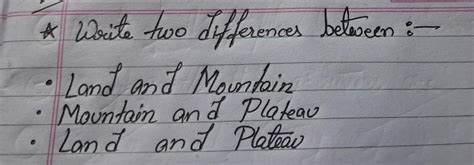 * Write two differences between :-
• Land and Mountain
• Mountain and Plateau
• Land and Plateau